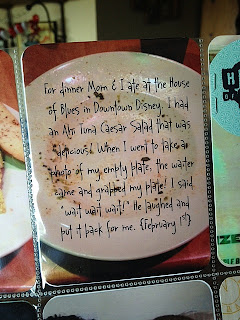 For dinner Mom & I ate at the House
of Blues in Downtown Disney. I had
an Ahi Tuna Caesar Salad that was
delicious! When I went to take a
photo of my empty plate, the waiter
came and grabbed my plate! I said
"wait wait wait!" He laughed and
put it back for me. {February 1st}
H
OF
ZE
FEB